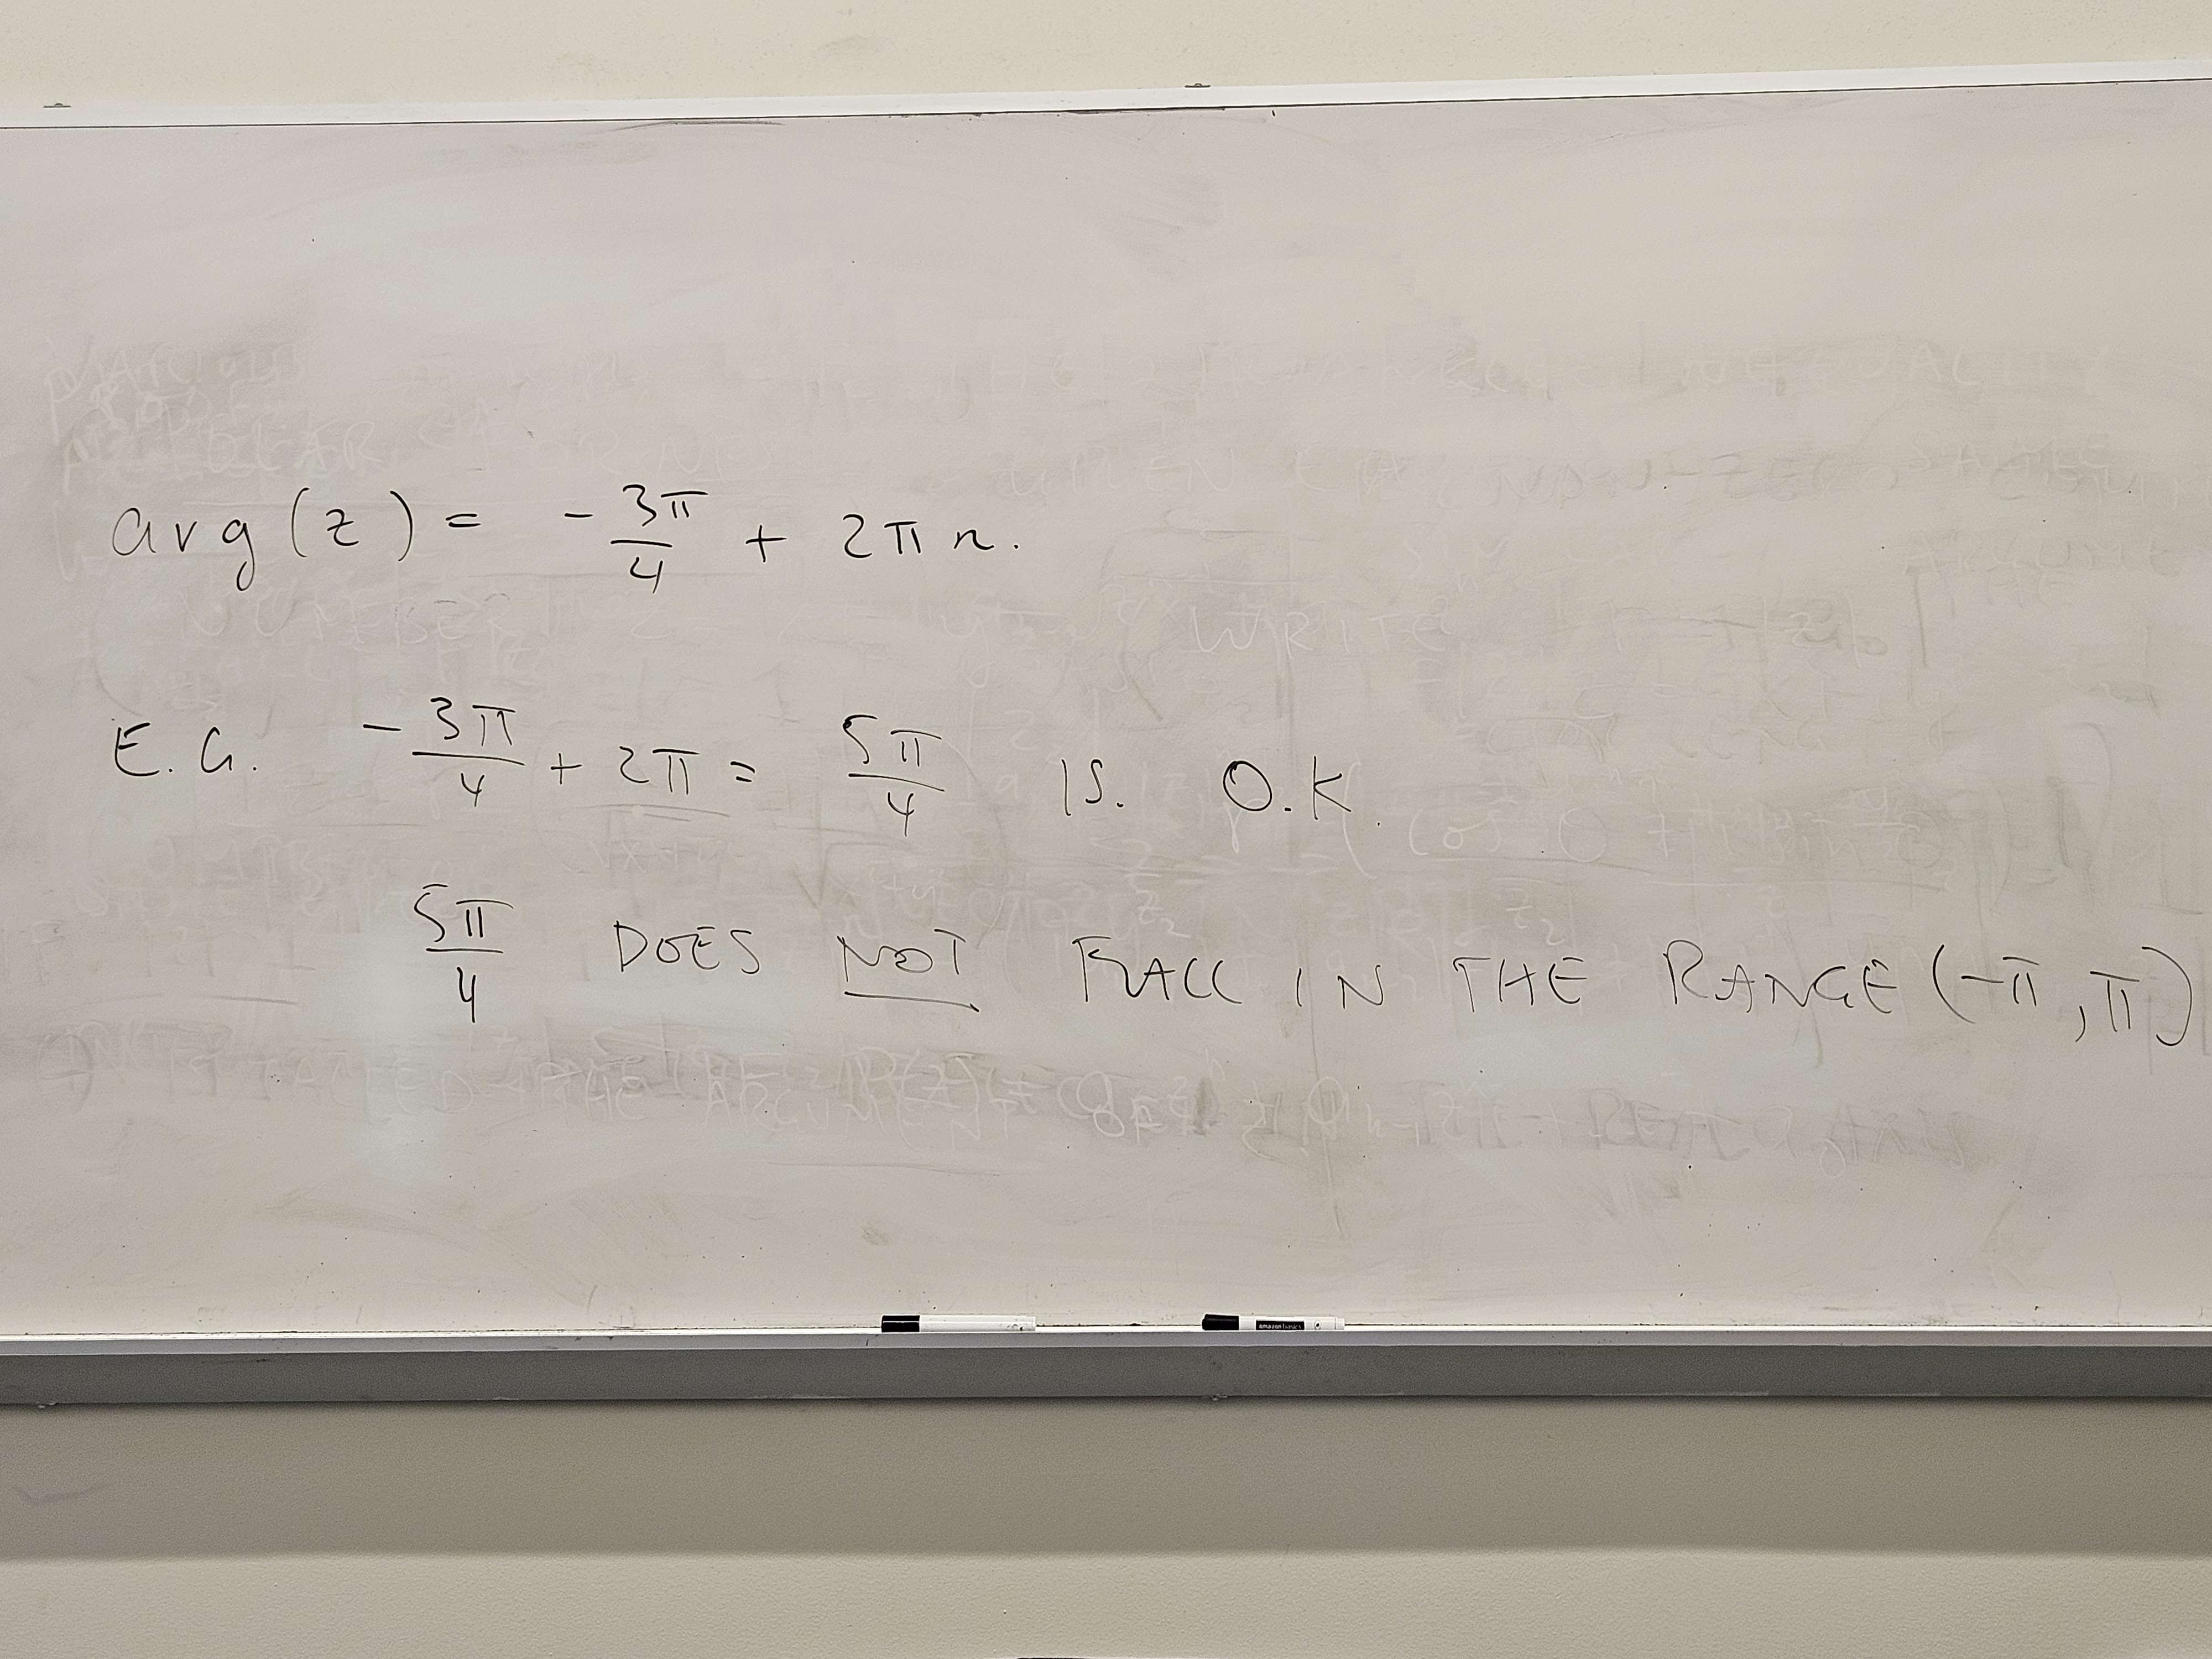 arg(z) = -3π/4 + 2πn.
E.G. -3π/4 + 2π = 5π/4 IS. O.K.
5π/4 DOES NOT FALL IN THE RANGE (-π, π)
amazon basics